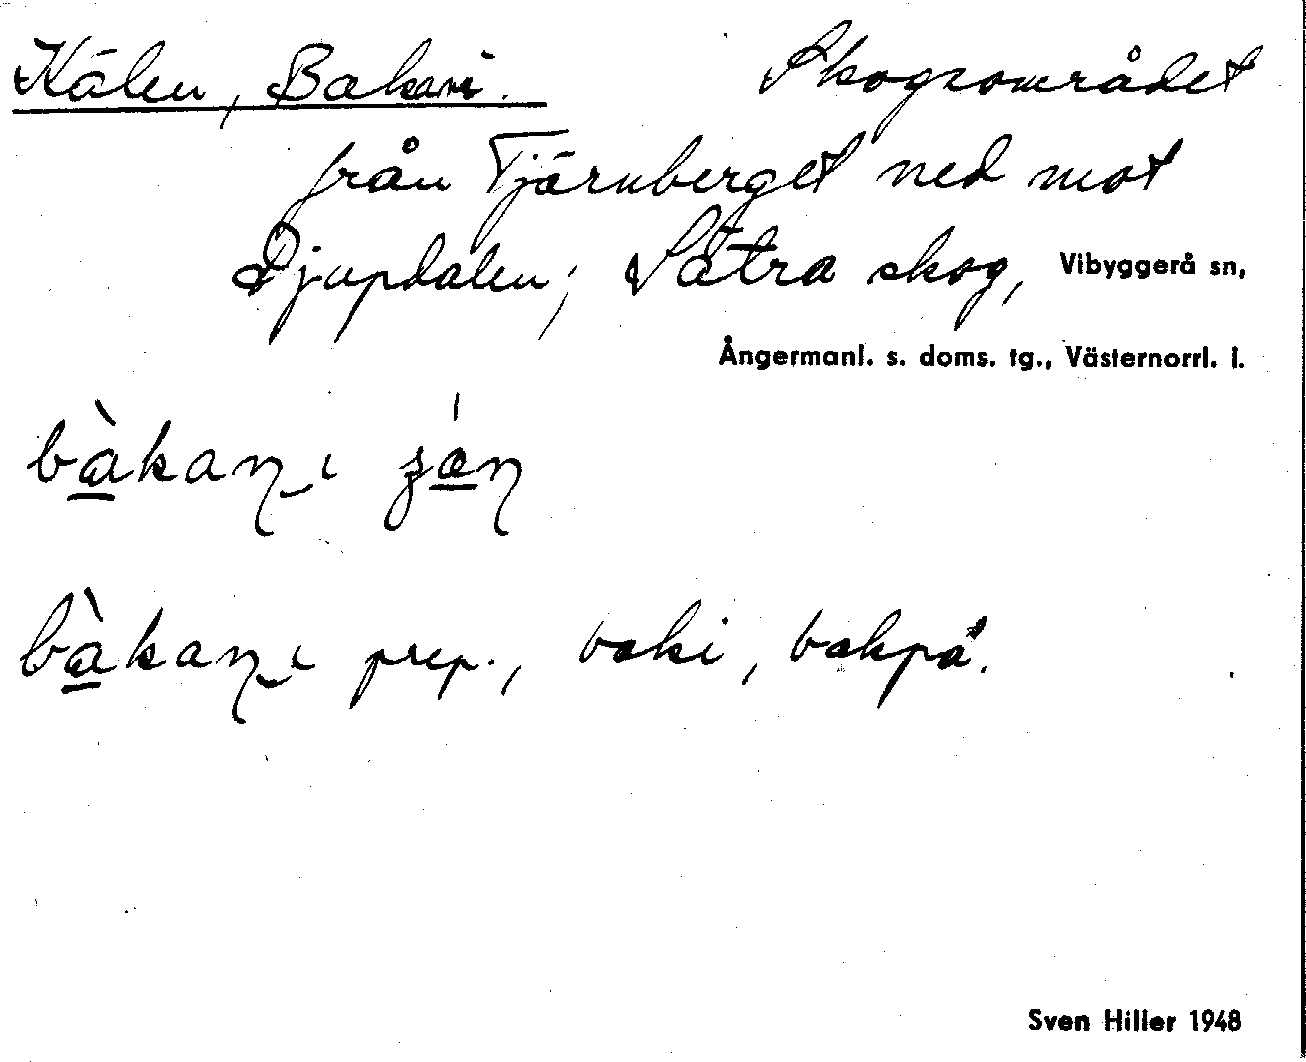 Kälen, Bakani. Skogsområdet
från Tjärnberget ned mot
Djupdalen; Sätra skog, Vibyggerå sn,
Ångermanl. s. doms. tg., Västernorrl. l.
bàkaɳ_ı
bàkaɳ_ı prep., baki, bakpå.
Sven Hiller 1948